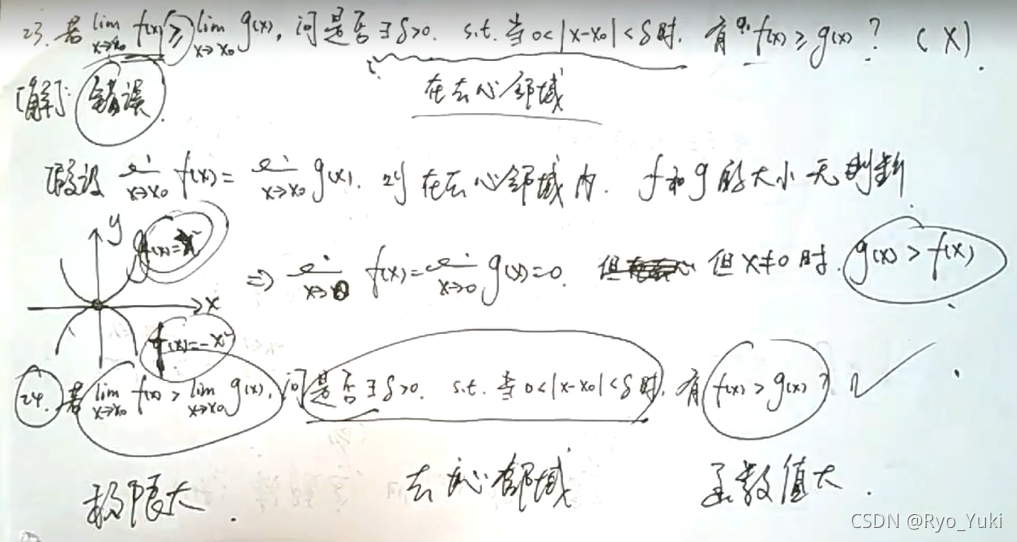 23. 若 lim x→x₀ f(x) ≥ lim x→x₀ g(x), 问是否∃δ>0. s.t. 当0<|x-x₀|<δ时. 有 f(x)≥g(x)? (×).
[解]: 错误.
在去心邻域
假设 lim x→x₀ f(x) = lim x→x₀ g(x). 则在去心邻域内. f和g的大小无判断
y
g(x)=x²
⇒ lim x→0 f(x) = lim x→0 g(x)=0. 但x≠0时. g(x)>f(x)
x
f(x)=-x²
24. 若 lim x→x₀ f(x) > lim x→x₀ g(x), 问是否∃δ>0. s.t. 当0<|x-x₀|<δ时, 有f(x)>g(x)? ✓
极限大. 去心邻域 函数值大.
CSDN @Ryo_Yuki